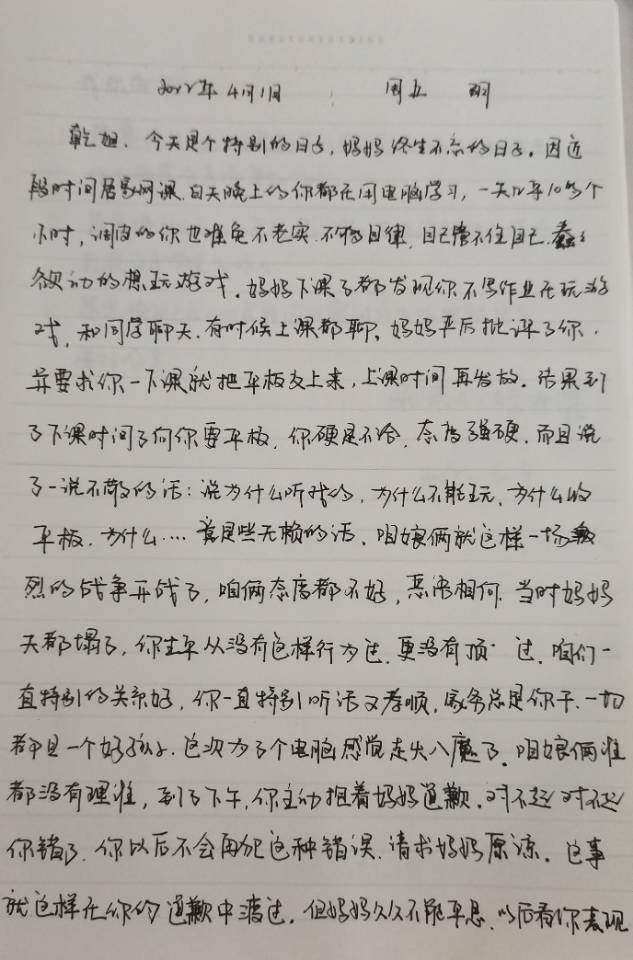 2022年4月1日 周五 阴
乾旭,今天是个特别的日子,妈妈终生不忘的日子。因近
段时间居家网课,白天晚上的你都在用电脑学习,一天几乎10多个
小时,调皮的你也难免不老实.不够自律,自己管不住自己.蠢蠢
欲动的想玩游戏。妈妈下课了都发现你不写作业在玩游
戏,和同学聊天.有时候上课都聊。妈妈严厉批评了你.
并要求你一下课就把平板交上来,上课时间再发放。结果到
了下课时间了向你要平板,你硬是不给,态度强硬.而且说
了一说不敬的话:说为什么听我的,为什么不能玩,为什么收
平板.为什么....竟是些无赖的话,咱娘俩就这样一场
烈的战争开战了,咱俩态度都不好,恶语相向.当时妈妈
天都塌了,你生平从没有这样行为过.更没有顶 过,咱们一
直特别的关系好,你一直特别听话又孝顺,家务总是你干.一切
都是一个好孩子.这次为了个电脑感觉走火入魔了.咱娘俩谁
都没有理谁,到了下午,你主动抱着妈妈道歉.对不起对不起
你错了.你以后不会再犯这种错误.请求妈妈原谅。这事
就这样在你的道歉中渡过.但妈妈久久不能平息.以后看你表现